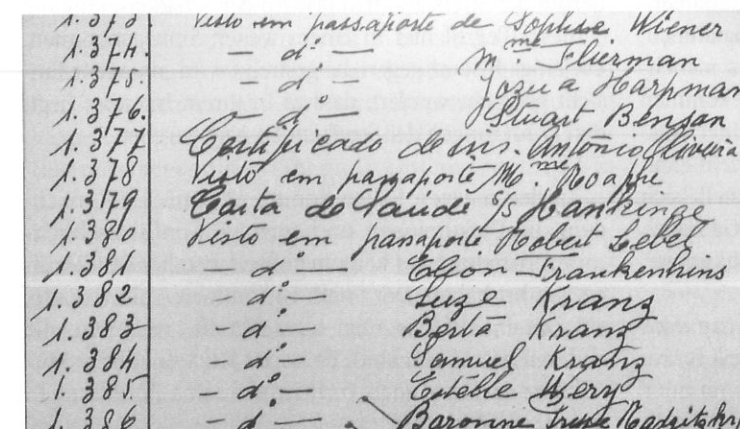 1.373 Visto em passaporte de Sophie Wiener
1.374 - dº - Mme. Flierman
1.375. - dº - Jozua Harpman
1.376. - dº - Stuart Benson
1.377 Certificado de ins. Antonio Oliveira
1.378 Visto em passaporte Mme.
1.379 Carta de Saude s/s Hankinge
1.380 Visto em passaporte Robert Lebel
1.381 - dº - Egon Frankenhins
1.382 - dº - Suze Kranz
1.383 - dº - Berta Kranz
1.384 - dº - Samuel Kranz
1.385. - dº - Estelle Wery
1.386 - dº - Baronne Irene